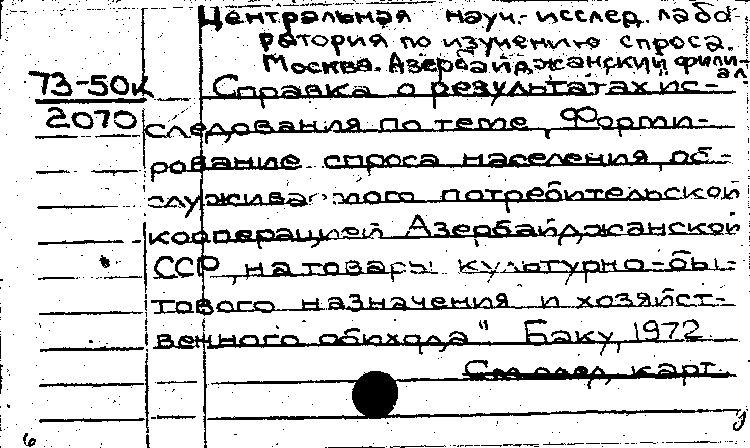 Центральная науч.-исслед. лабо-
ратория по изучению спроса.
Москва. Азербайджанский фили-
ал
73-50к Справка о результатах ис-
2070 следования по теме „Форми-
рование спроса населения, об-
служиваемого потребительской
кооперацией Азербайджанской
ССР, на товары культурно-бы-
тового назначения и хозяйст-
венного обихода" Баку, 1972
См. след. карт.
б у